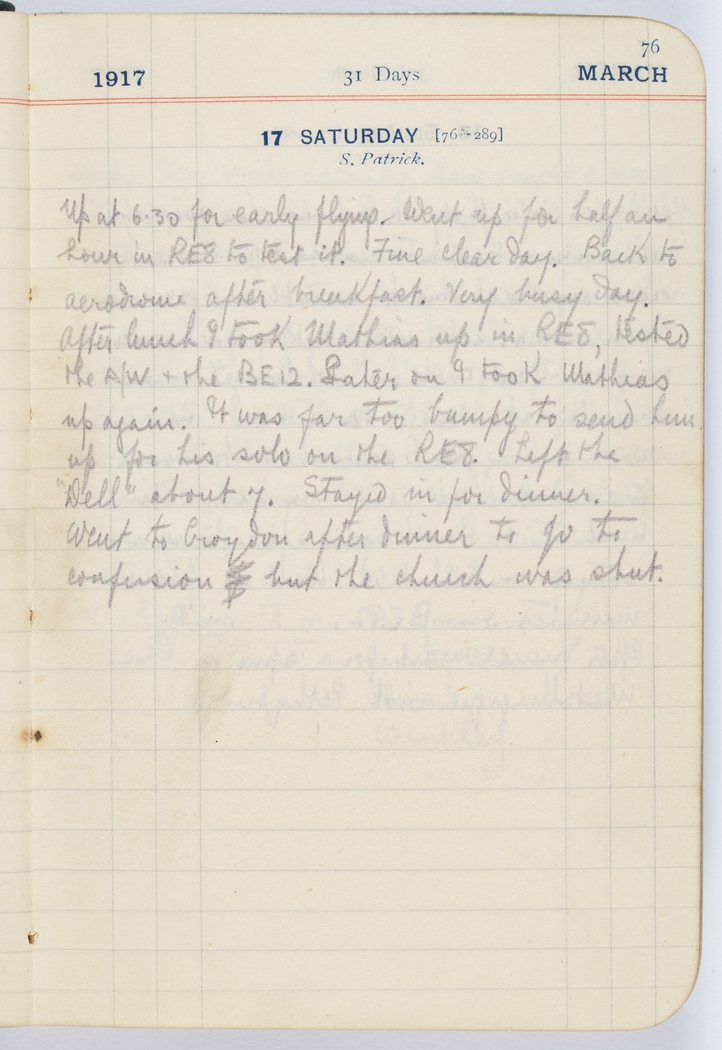 76
1917 31 Days MARCH
17 SATURDAY [76-289]
S. Patrick.
Up at 6.30 for early flying. Went up for half an
hour in RE8 to test it. Fine clear day. Back to
aerodrome after breakfast. Very busy day.
After lunch I took Mathias up in RE8, tested
the A/W + the BE12. Later on I took Mathias
up again. It was far too bumpy to send him
up for his solo on the RE8. Left the
"Dell" about 7. Stayed in for dinner.
Went to Croydon after dinner to go to
confession but the church was shut.